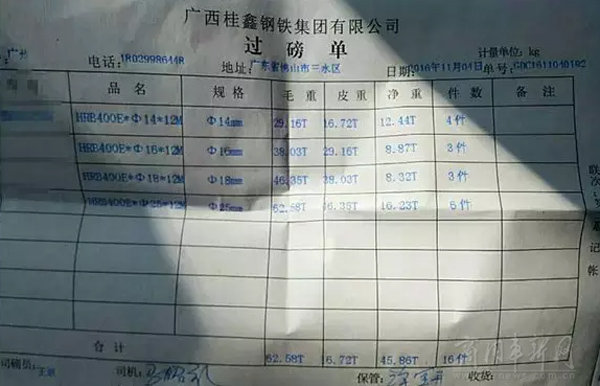 广西桂鑫钢铁集团有限公司
过磅单
计量单位: kg
广州 电话: 18029986448 地址: 广东省佛山市三水区 日期: 2016年11月04日 单号: GDC1611040182
品名 规格 毛重 皮重 净重 件数 备注
HRB400E*Φ14*12M Φ14mm 29.16T 16.72T 12.44T 4件
HRB400E*Φ16*12M Φ16mm 38.03T 29.16T 8.87T 3件
HRB400E*Φ18*12M Φ18mm 46.35T 38.03T 8.32T 3件
HRB400E*Φ25*12M Φ25mm 62.58T 46.35T 16.23T 6件
合计 62.58T 16.72T 45.86T 16件
司磅员: 王 司机: 保管: 收货:
联
次
记
帐
商用车新网